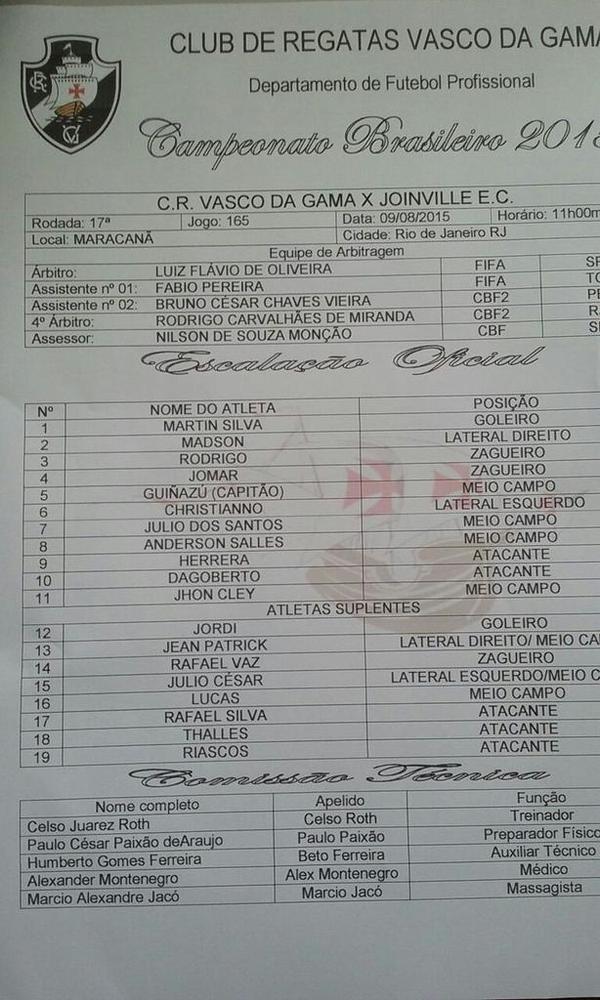 CLUB DE REGATAS VASCO DA GAMA
Departamento de Futebol Profissional
Campeonato Brasileiro 2015
C.R. VASCO DA GAMA X JOINVILLE E.C.
Rodada: 17ª Jogo: 165 Data: 09/08/2015 Horário: 11h00m
Local: MARACANÃ Cidade: Rio de Janeiro RJ
Equipe de Arbitragem
Árbitro: LUIZ FLÁVIO DE OLIVEIRA FIFA SP
Assistente nº 01: FABIO PEREIRA FIFA TO
Assistente nº 02: BRUNO CÉSAR CHAVES VIEIRA CBF2 PE
4º Árbitro: RODRIGO CARVALHÃES DE MIRANDA CBF2 R
Assessor: NILSON DE SOUZA MONÇÃO CBF S
Escalação Oficial
Nº NOME DO ATLETA POSIÇÃO
1 MARTIN SILVA GOLEIRO
2 MADSON LATERAL DIREITO
3 RODRIGO ZAGUEIRO
4 JOMAR ZAGUEIRO
5 GUIÑAZÚ (CAPITÃO) MEIO CAMPO
6 CHRISTIANNO LATERAL ESQUERDO
7 JULIO DOS SANTOS MEIO CAMPO
8 ANDERSON SALLES MEIO CAMPO
9 HERRERA ATACANTE
10 DAGOBERTO ATACANTE
11 JHON CLEY MEIO CAMPO
ATLETAS SUPLENTES
12 JORDI GOLEIRO
13 JEAN PATRICK LATERAL DIREITO/ MEIO CA
14 RAFAEL VAZ ZAGUEIRO
15 JULIO CÉSAR LATERAL ESQUERDO/MEIO C
16 LUCAS MEIO CAMPO
17 RAFAEL SILVA ATACANTE
18 THALLES ATACANTE
19 RIASCOS ATACANTE
Comissão Técnica
Nome completo Apelido Função
Celso Juarez Roth Celso Roth Treinador
Paulo César Paixão deAraujo Paulo Paixão Preparador Físico
Humberto Gomes Ferreira Beto Ferreira Auxiliar Técnico
Alexander Montenegro Alex Montenegro Médico
Marcio Alexandre Jacó Marcio Jacó Massagista